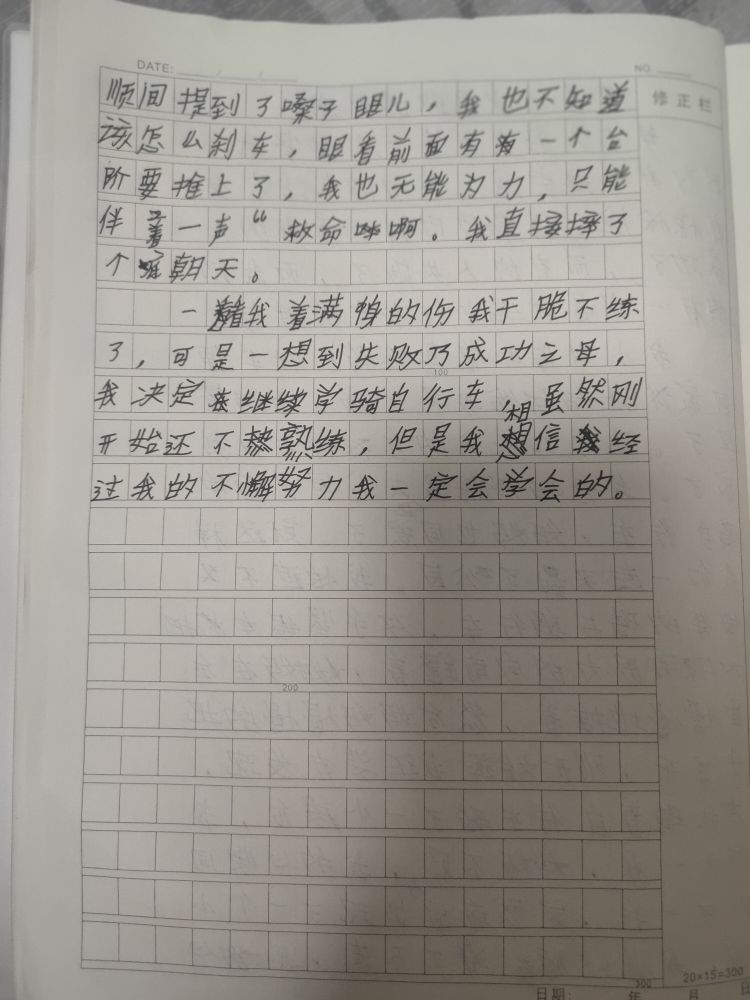 DATE: / /
NO.
修正栏
顺间提到了嗓子眼儿，我也不知道
该怎么刹车，眼看前面有一个台
阶要撞上了，我也无能为力，只能
伴着一声“救命啊。我直接摔了
个朝天。
一我着满的伤我干脆不练
了，可是一想到失败乃成功之母，
100
我决定继续学骑自行车，虽然刚
开始还不熟练，但是我相信经
过我的不懈努力我一定会学会的。
200
300
20×15=300
日期: 年 月 日